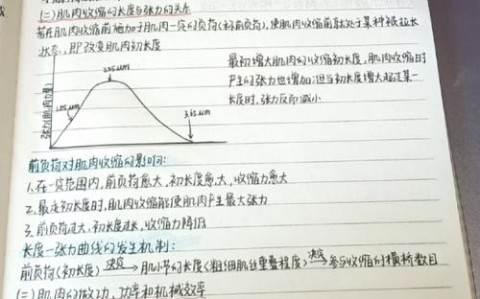 (二)肌肉收缩的长度与张力的关系
若在肌肉收缩前施加于肌肉一定的负荷(称前负荷),使肌肉收缩前就处于某种被拉长
状态,即改变肌肉初长度
最初增大肌肉的收缩初长度,肌肉收缩时
产生的张力也增加;但当初长度增大超过某一
长度时,张力反而减小
张力(肌肉力量)
2.25μm
3.65μm
前负荷对肌肉收缩的影响:
1.在一定范围内,前负荷愈大,初长度愈大,收缩力愈大
2.最适初长度时,肌肉收缩能使肌肉产生最大张力
3.前负荷过大,初长度过长,收缩力降低
长度—张力曲线的发生机制:
前负荷(初长度) 决定 → 肌小节的长度(粗细肌丝重叠程度) 决定 → 参与收缩的横桥数目
(三)肌肉的做功、功率和机械效率